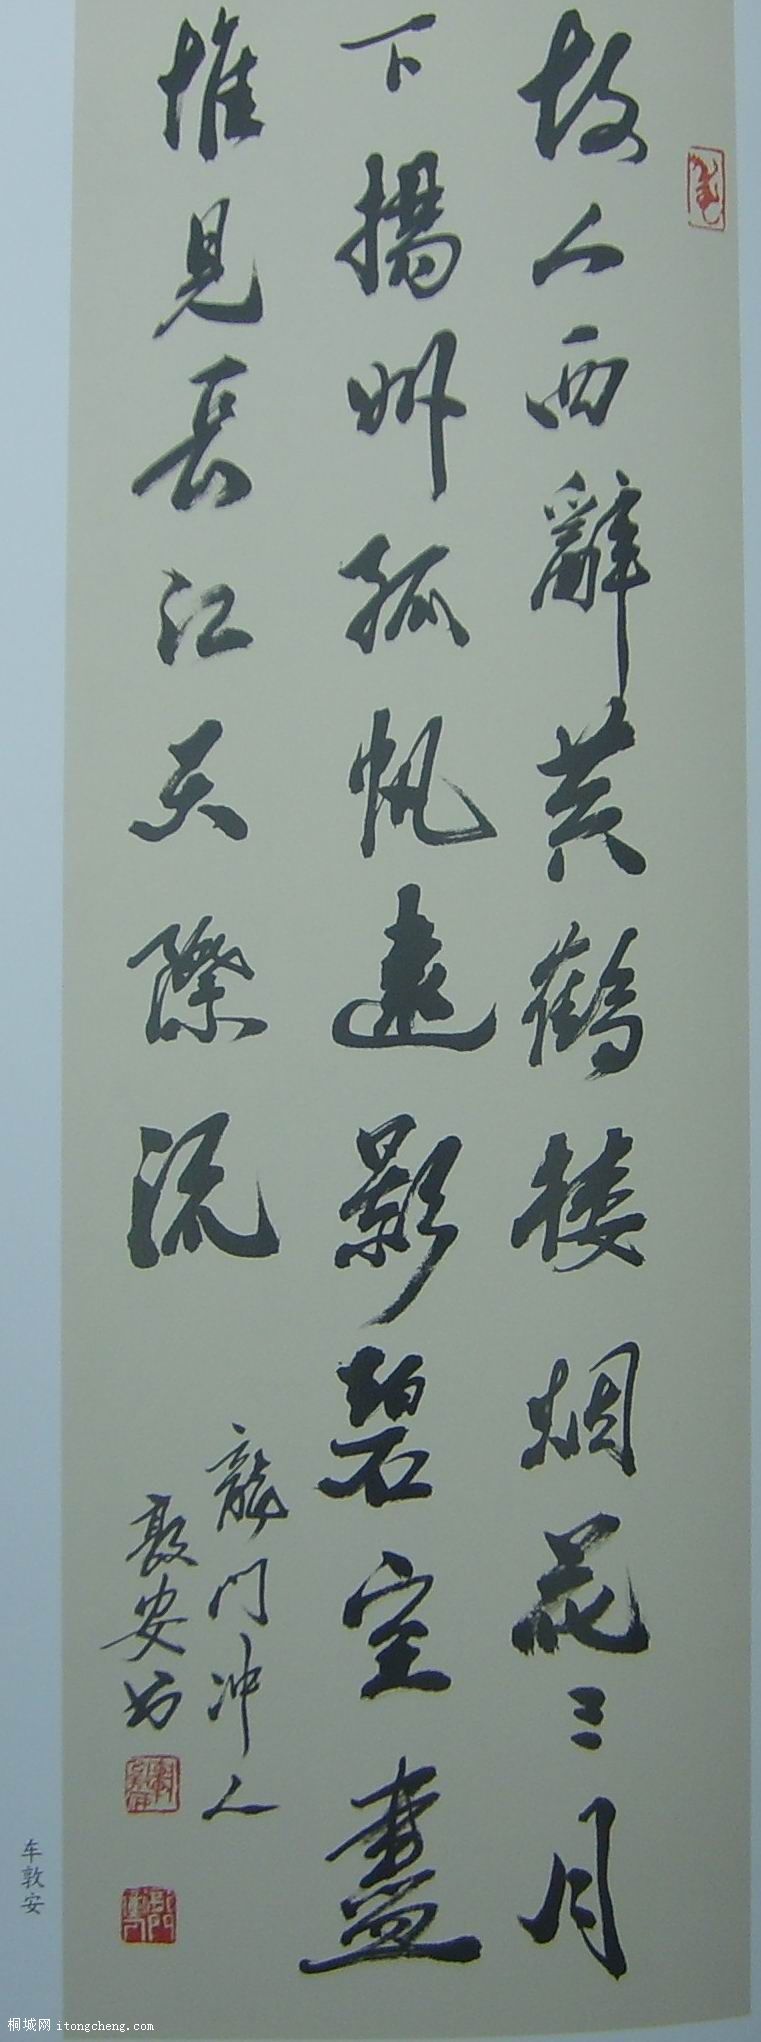 故人西辭黃鶴楼烟花三月
下揚州孤帆遠影碧空盡
惟見長江天際流
龍门冲人
敦安书
车敦安
桐城网 itongcheng.com